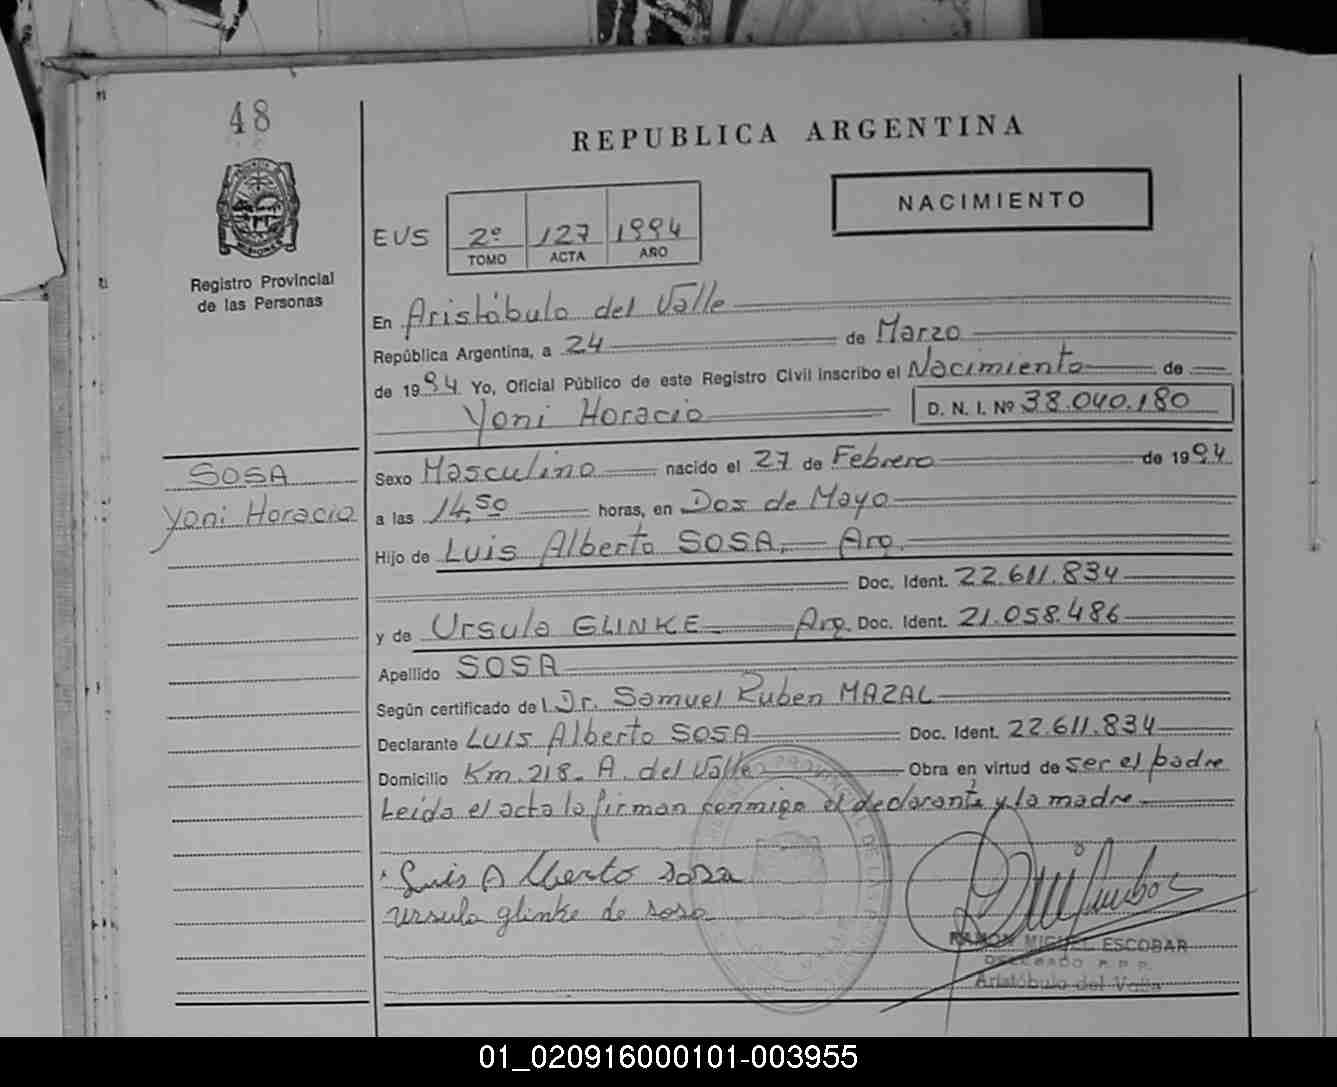 48
REPUBLICA ARGENTINA
NACIMIENTO
EUS 2º 127 1994
TOMO ACTA AÑO
Registro Provincial
de las Personas
En Aristóbulo del Valle
República Argentina, a 24 de Marzo
de 1994 Yo, Oficial Público de este Registro Civil inscribo el Nacimiento de
Yoni Horacio D. N. I. Nº 38.040.180
SOSA
Yoni Horacio
Sexo Masculino nacido el 27 de Febrero de 1994
a las 14,50 horas, en Dos de Mayo
Hijo de Luis Alberto SOSA. Arg.
Doc. Ident. 22.611.834
y de Ursula GLINKE Arg. Doc. Ident. 21.058.486
Apellido SOSA
Según certificado del Dr. Samuel Ruben MAZAL
Declarante Luis Alberto SOSA Doc. Ident. 22.611.834
Domicilio Km. 218- A. del Valle Obra en virtud de ser el padre
Leída el acta la firman conmigo el declarante y la madre
Luis Alberto sosa
ursula glinke de sosa
RAMON MIGUEL ESCOBAR
DELEGADO R.P.P.
Aristóbulo del Valle
01_020916000101-003955